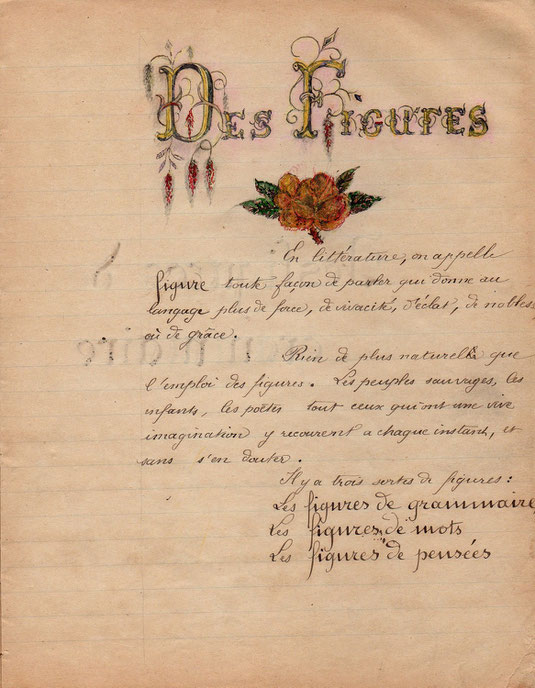 Des Figures
En littérature, on appelle
figure toute façon de parler qui donne au
langage plus de force, de vivacité, d'éclat, de nobless
où de grâce.
Rien de plus naturelle que
l'emploi des figures. Les peuples sauvages, les
enfants, les poètes tout ceux qui ont une vive
imagination y recourent a chaque instant, et
sans s'en douter.
Il y a trois sortes de figures :
Les figures de grammaire,
Les figures de mots
Les figures de pensées